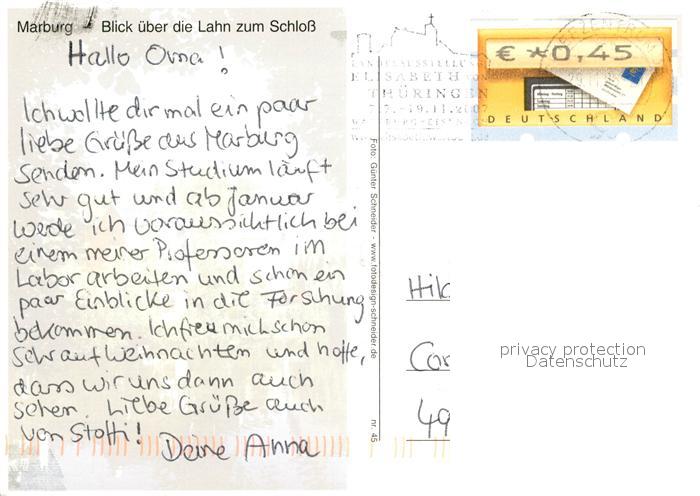 Marburg - Blick über die Lahn zum Schloß
Hallo Oma!
Ich wollte dir mal ein paar
liebe Grüße aus Marburg
senden. Mein Studium läuft
sehr gut und ab Januar
werde ich voraussichtlich bei
einem meiner Professoren im
Labor arbeiten und schon ein
paar Einblicke in die Forschung
bekommen. Ich freu mich schon
sehr auf Weihnachten und hoffe,
dass wir uns dann auch
sehen. Liebe Grüße auch
von Stoffi!
Deine Anna
Foto: Günter Schneider - www.fotodesign-schneider.de
nr. 45
LANDESAUSSTELLUNG
ELISABETH VON
THÜRINGEN
7.7.-19.11.2007
€ *0,45
DEUTSCHLAND
Hil
Cor
49
privacy protection
Datenschutz